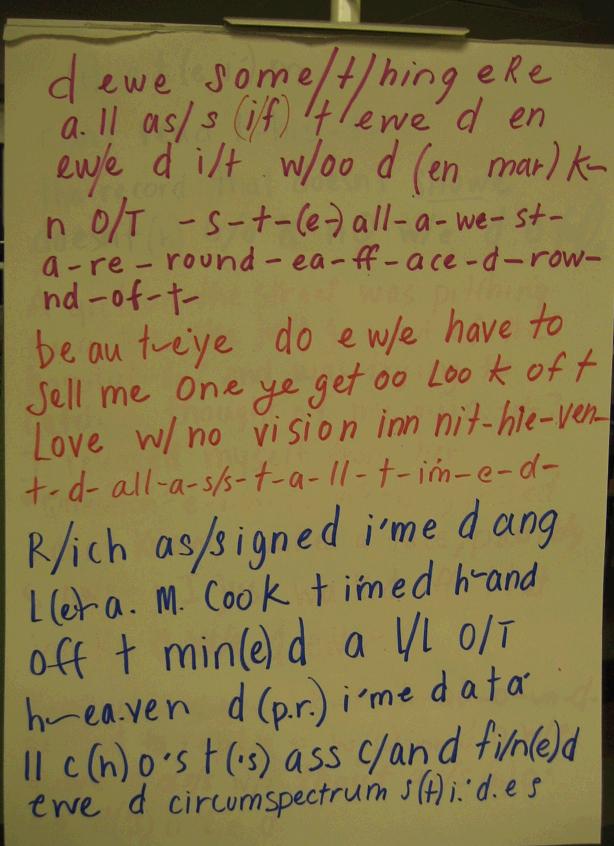 d ewe some/t/hing eRe
a. ll as/s (if) t ewe d en
ew/e d i/t w/oo d (en mar) k-
n O/T -s-t-(e-) all-a-we-st-
a-re-round-ea-ff-ace-d-row-
nd-of-t-
beaut-eiye do e w/e have to
sell me one ye get oo Loo k of t
Love w/no vision inn nit-hie-ven-
t-d-all-a-s/s-t-a-ll-t-im-e-d-
R/ich as/signed i'me d ang
L(et a. M. Cook t imed h-and
off t min(e) d a l/l O/T
h-ea.ven d (p.r.) i'me d a t a
ll c(h)o's t(.s) ass c/and fi/n(e)d
ewe d circumspectrum s(t)i.'d.e s